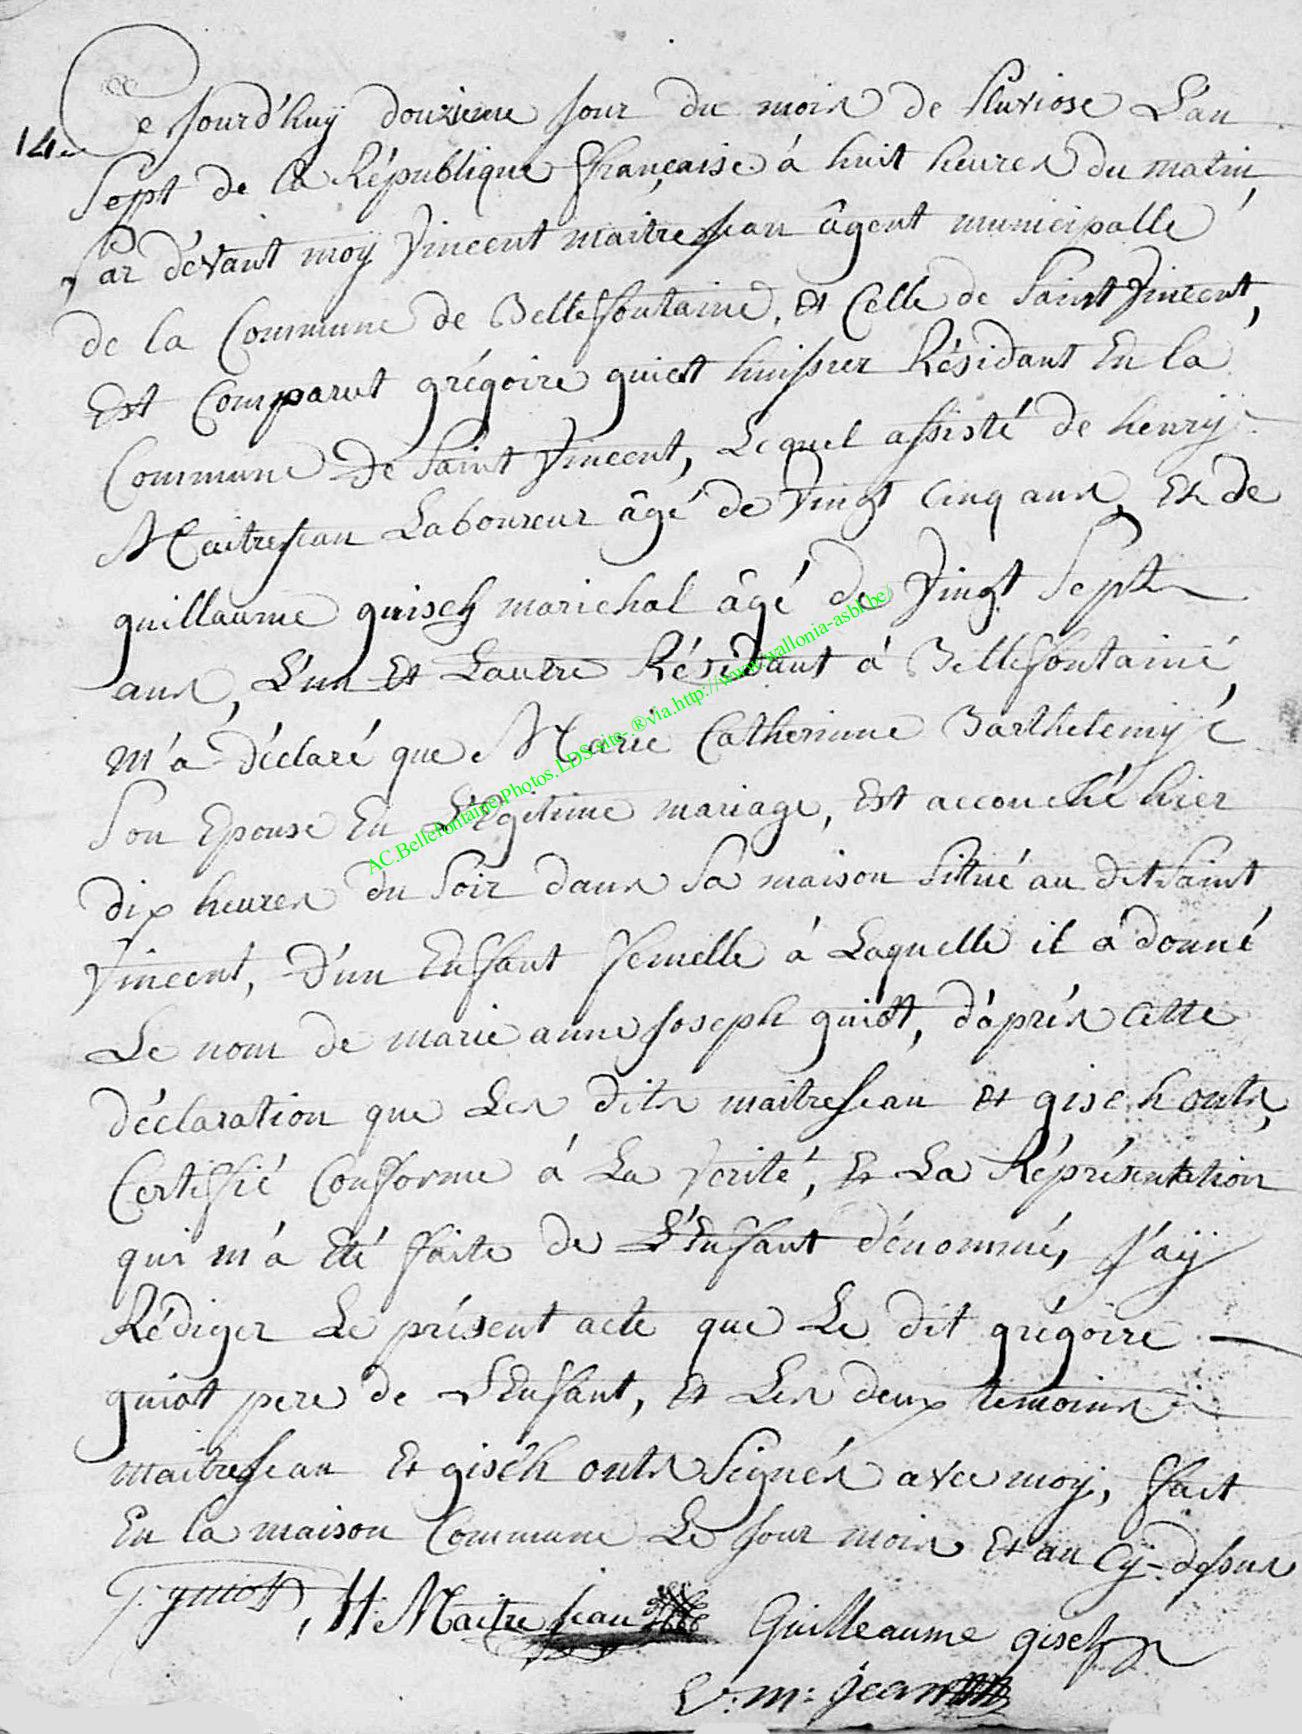 14.
Ce jourd'huÿ douzieme jour du mois de Pluviose L'an
Sept de la République ffrançaise à huit heures du matin,
Par dévant moÿ Vincent maitrejean âgent municipalle
de la Commune de Bellefontaine, et Celle de Saint Vincent,
Est Comparut grégoire guiot huissier Résidant En la
Commune De Saint Vincent, Lequel assisté de henrÿ
Maitrejean Laboureur âgé de Vingt Cinq ans, Et de
guillaume guisch marichal âgé de Vingt Sept
ans, L'un Et Lautre Résidant à Bellefontaine,
m'a déclaré que Marie Catherinne Barthelemÿ
Son Epouse En L'Egitime mariage, Est accouché hier
dix heures du Soir dans Sa maison Situé au dit Saint
Vincent, D'un Enfant femelle à Laquelle il a donné
Le nom de marie anne joseph guiot, d'àprés Cette
déclaration que Les dits maitrejean et gisch onts,
Certiffié Conforme à La Verité, Et La Réprésentation
qui m'à Eté ffaite de L'Enfant dénommé, J'aÿ
Rédiger Le présent acte que Le dit grégoire
guiot pere de L'Enfant, Et Les deux temoins
maitrejean Et gisch onts Signés avec moÿ, ffait
En la maison Commune Le jour mois Et an Cÿ-dessus
G. guiot, H. Maitrejean Guilleaume gisch
V: m: jean
AC.Bellefontaine.Photos.LDS.site-®via.http://www.wallonia-asbl.be/